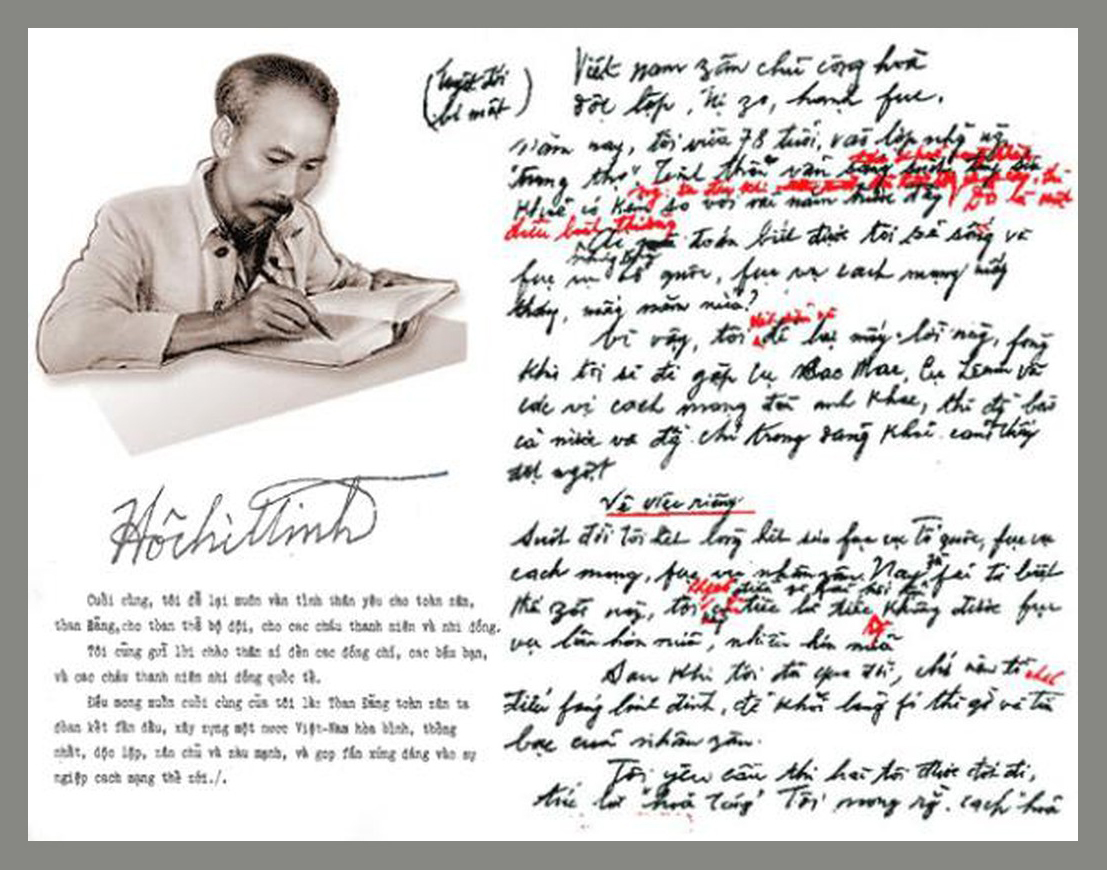 (tuyệt đối
bí mật)
Việt nam zân chủ cộng hoà
độc lập, tự zo, hạnh fúc.
Năm nay, tôi vừa 78 tuổi, vào lớp những
"trung thọ". Tinh thần vẫn
có kém so với vài năm trước đây Đó là một
điều bình thường
Ai mà đoán biết được tôi sẽ sống và
fục vụ tổ quốc, fục vụ cách mạng mấy
tháng, mấy năm nữa?
Vì vậy, tôi để lại mấy lời này, fòng
khi tôi sẽ đi gặp cụ Các Mác, Cụ Lênin và
các vị cách mạng đàn anh khác, thì đồng bào
cả nước và đồng chí trong đảng khỏi cảm thấy
đột ngột.
Về việc riêng
Suốt đời tôi hết lòng hết sức fục vụ Tổ quốc, fục vụ
cách mạng, fục vụ nhân zân. Nay zù fải từ biệt
thế zới này, tôi không tiếc là tiếc không được fục
vụ lâu hơn nữa, nhiều hơn nữa
Sau khi tôi đã qua đời, chớ nên tổ chức
điếu fúng linh đình, để khỏi lãng fí thì giờ và tiền
bạc của nhân zân.
Tôi yêu cầu thi hài tôi được đốt đi,
tức là "hoả táng". Tôi mong rằng cách "hoả
Hồ Chí Minh
Cuối cùng, tôi để lại muôn vàn tình thân yêu cho toàn zân,
toàn Đảng,cho toàn thể bộ đội, cho các cháu thanh niên và nhi đồng.
Tôi cũng gửi lời chào thân ái đến các đồng chí, các bầu bạn,
và các cháu thanh niên nhi đồng quốc tế.
Điều mong muốn cuối cùng của tôi là: Toàn Đảng toàn zân ta
đoàn kết fấn đấu, xây zựng một nước Việt-Nam hòa bình, thống
nhất, độc lập, zân chủ và zàu mạnh, và góp fần xứng đáng vào sự
ngiệp cách mạng thế zới./.